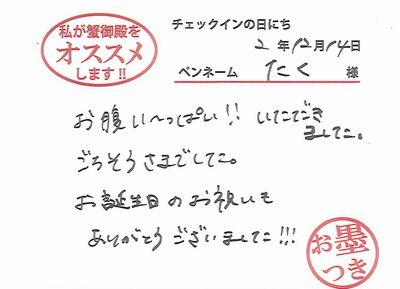 私が蟹御殿を
オススメ
します!!
チェックインの日にち
2 年 12月 14日
ペンネーム たく 様
お腹い〜っぱい!! いただき
ました。
ごちそうさまでした。
お誕生日のお祝いも
ありがとうございました!!!
お墨
つき